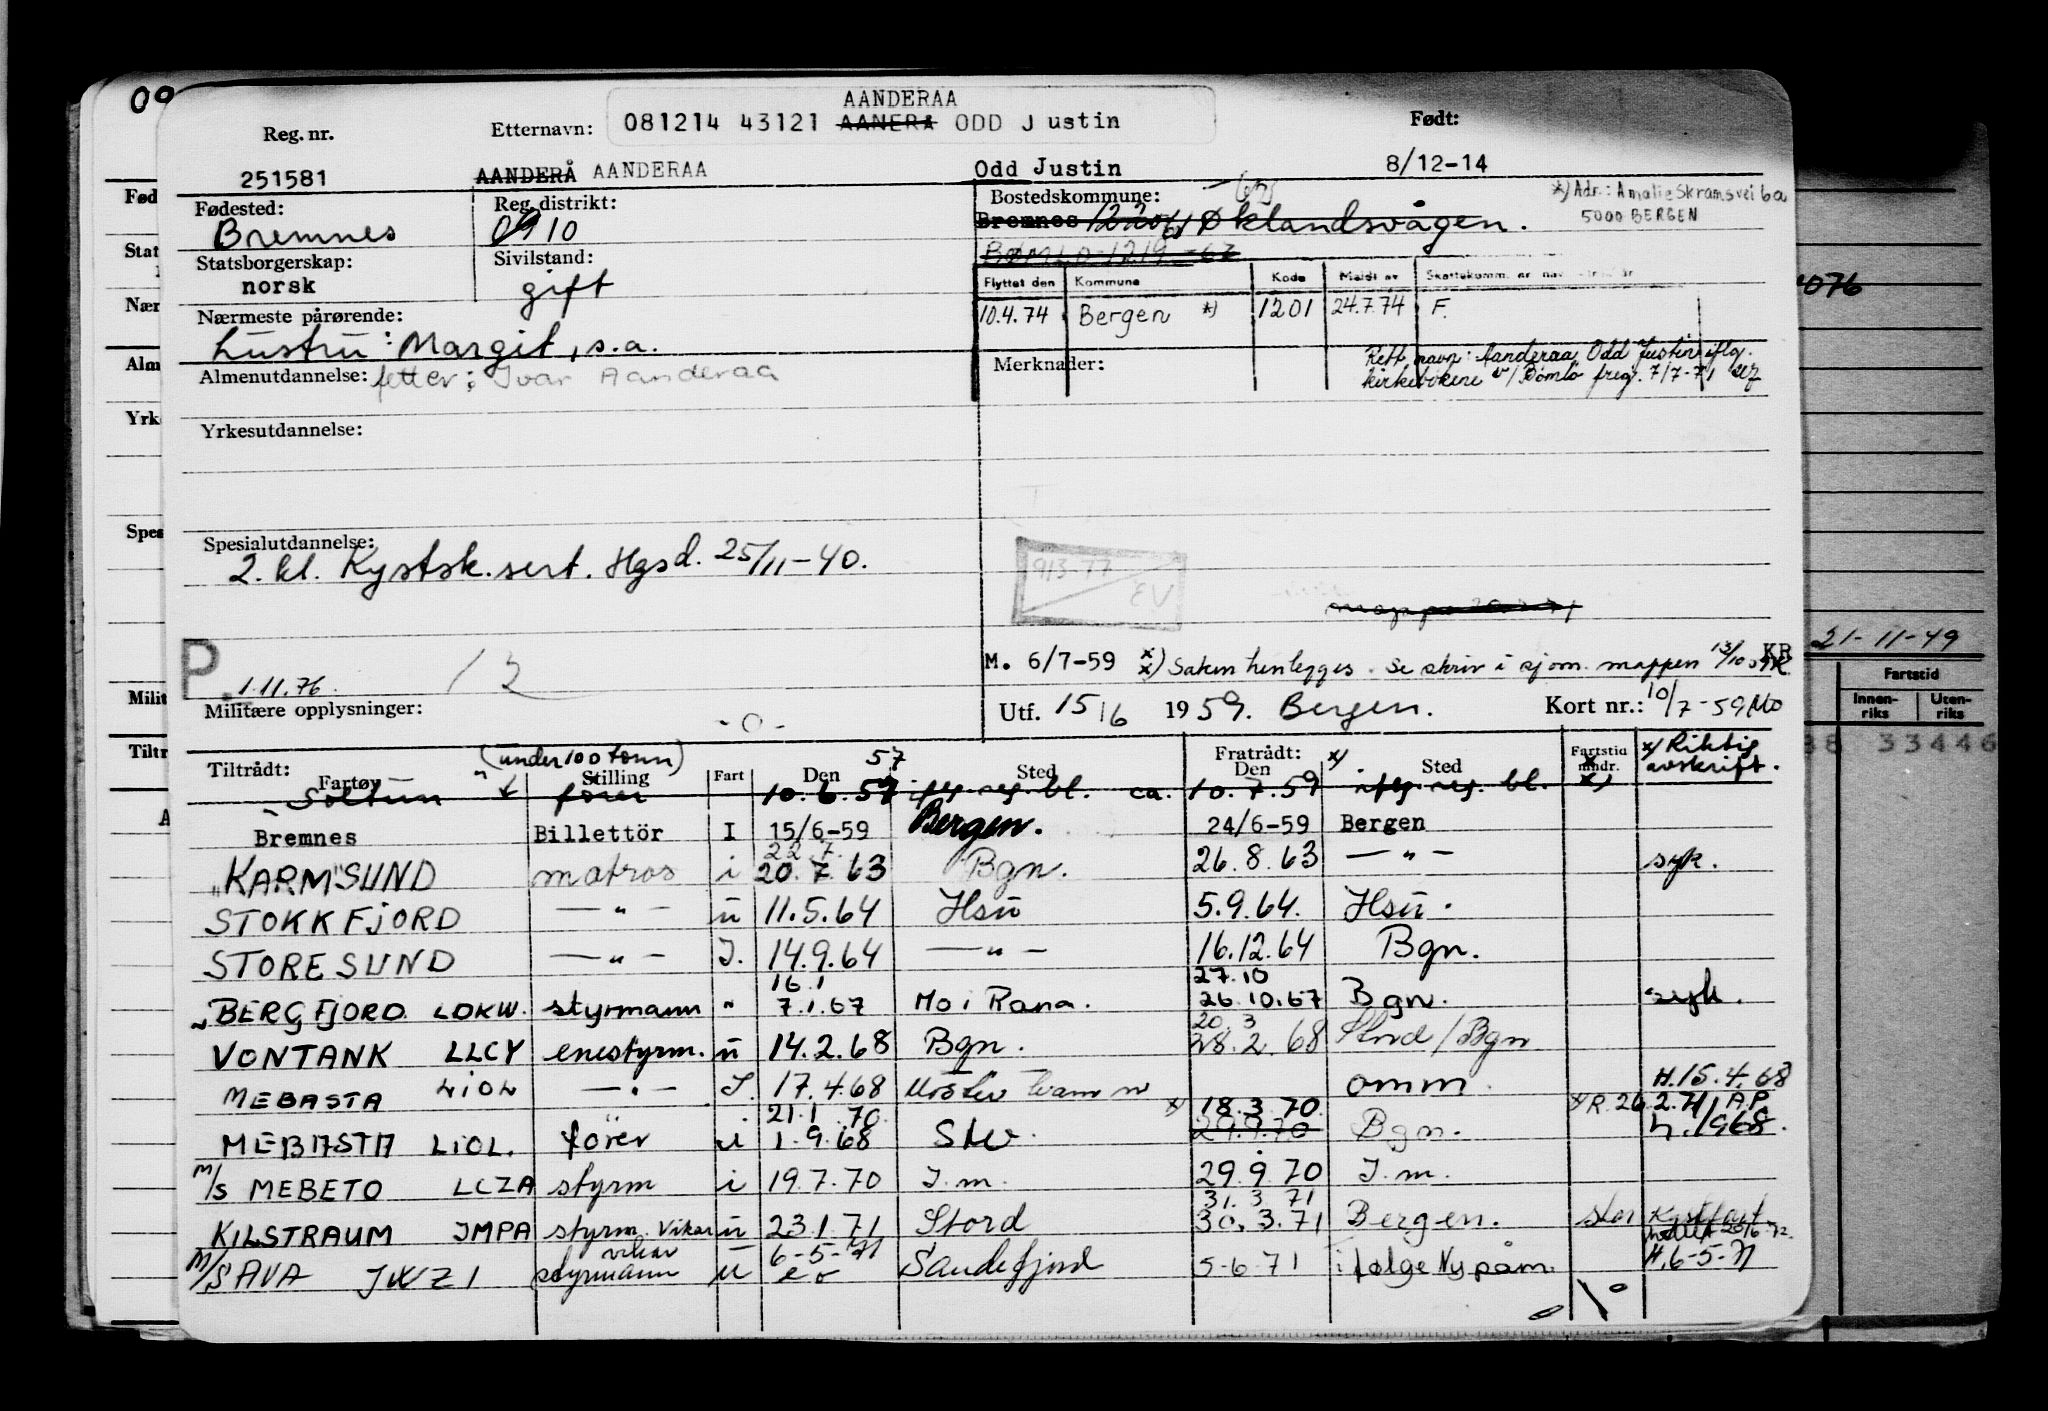 AANDERAA
Reg. nr. Etternavn: 081214 43121 AANERA ODD Justin Født:
251581 AANDERÅ AANDERAA Odd Justin 8/12-14
Fødested: Reg. distrikt: Bostedskommune: *) Adr.: Amalie Skramsvei 6a
Bremnes 0910 Bremnes Øklandsvågen. 5000 BERGEN
Statsborgerskap: Sivilstand:
norsk gift Flyttet den Kommune Kode Meldt av
Nærmeste pårørende: 10.4.74 Bergen *) 1201 24.7.74 F.
hustru: Margit, s.a. Merknader: Rett navn: Aanderaa Odd Justin iflg.
Almenutdannelse: fetter: Ivar Aanderaa kirkebokene v/Bømlo preg. 7/7-71
Yrkesutdannelse:
Spesialutdannelse:
2. kl. Kystsk. sert. Hgsd. 25/11-40.
913-77
EV
P. 1.11.76. M. 6/7-59 *) Saken henlegges. Se skriv i sjøm. mappen KR
Militære opplysninger: -0- Utf. 15/6 1959. Bergen. Kort nr.: 10/7-59 MO
21-11-49
Fartstid
Innenriks Utenriks
33446
(under 100 tonn) 57 Fratrådt: Fartstid *) Riktig
Tiltrådt: Fartøy Stilling Fart Den Sted Den Sted mndr. avskrift.
Soltun fører 10.6.59 iflg. reg. bl. ca. 10.7.59 iflg. reg. bl.
Bremnes Billettör I 15/6-59 Bergen. 24/6-59 Bergen
22 7.
"KARMSUND" matros i 20.7.63 Bgn. 26.8.63 — " — syk.
STOKKFJORD — " — u 11.5.64 Hsu 5.9.64. Hsu.
STORESUND — " — I. 14.9.64 — " — 16.12.64 Bgn.
16.1 27.10
BERGFJORD LDKW. styrmann " 7.1.67 Mo i Rana. 26.10.67 Bgn. syk.
20. 3
VONTANK LLCY enestyrm. u 14.2.68 Bgn. 28.2.68 Stord/Bgn
MEBASTA LIOL — " — I. 17.4.68 omm. H.15.4.68
21.1.70 *) 18.3.70. *) R. 26.2.71 A.P.
MEBASTA LIOL. fører u 1.9.68 Bgn. 4.1968.
M/S MEBETO LCZA styrm i 19.7.70 I.m. 29.9.70 I.m.
31. 3 71
KILSTRAUM JMPA styrm. Vikar u 23.1.71 Stord 30.3.71 Bergen. stor Kystfart
vikar 6-5-71
M/S AVA JWZI styrmann u Sandefjord 5-6-71 i følge Ny påm. H.6-5-71